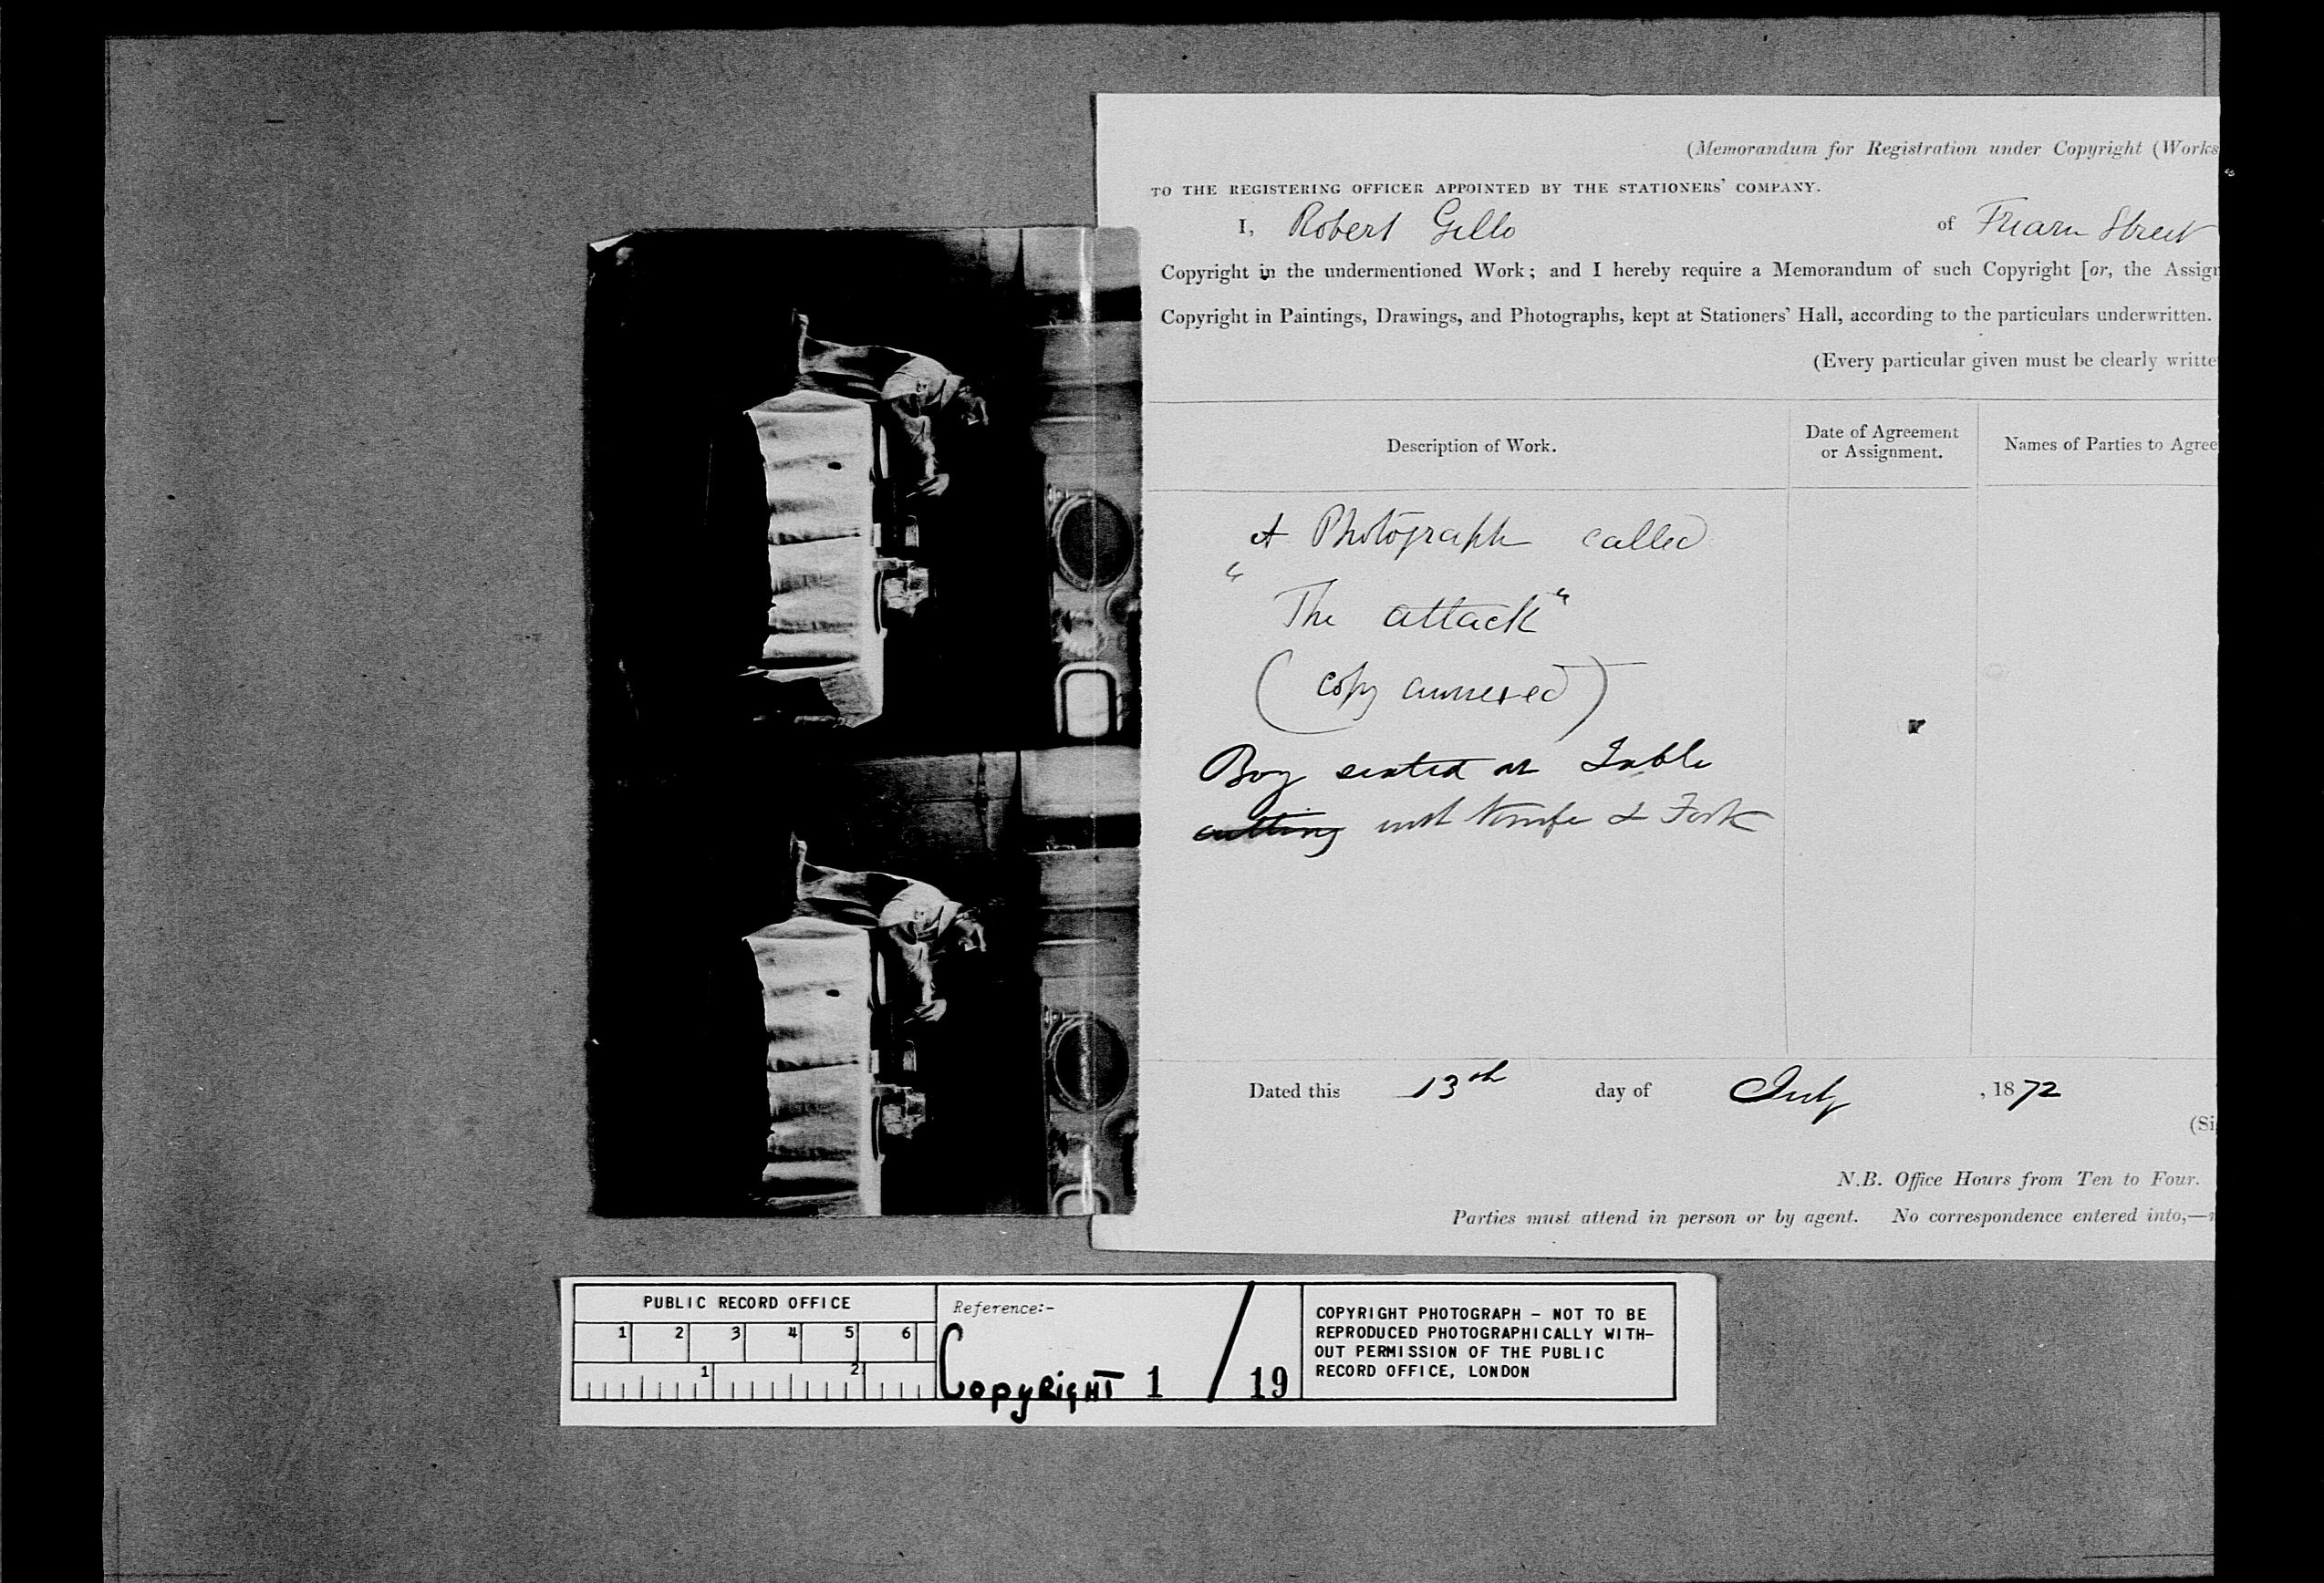 (Memorandum for Registration under Copyright (Works
TO THE REGISTERING OFFICER APPOINTED BY THE STATIONERS' COMPANY.
I, Robert Gillo of Friarn Street
Copyright in the undermentioned Work; and I hereby require a Memorandum of such Copyright [or, the Assign
Copyright in Paintings, Drawings, and Photographs, kept at Stationers' Hall, according to the particulars underwritten.
(Every particular given must be clearly writte
Description of Work.
Date of Agreement
or Assignment.
Names of Parties to Agree
A Photograph called
"The attack"
(copy annexed)
Boy seated at Table
cutting with Knife & Fork
Dated this 13th day of July, 1872
(Si
N.B. Office Hours from Ten to Four.
Parties must attend in person or by agent. No correspondence entered into,—
PUBLIC RECORD OFFICE
1 2 3 4 5 6
1 2
Reference:-
Copyright 1 / 19
COPYRIGHT PHOTOGRAPH - NOT TO BE
REPRODUCED PHOTOGRAPHICALLY WITH-
OUT PERMISSION OF THE PUBLIC
RECORD OFFICE, LONDON